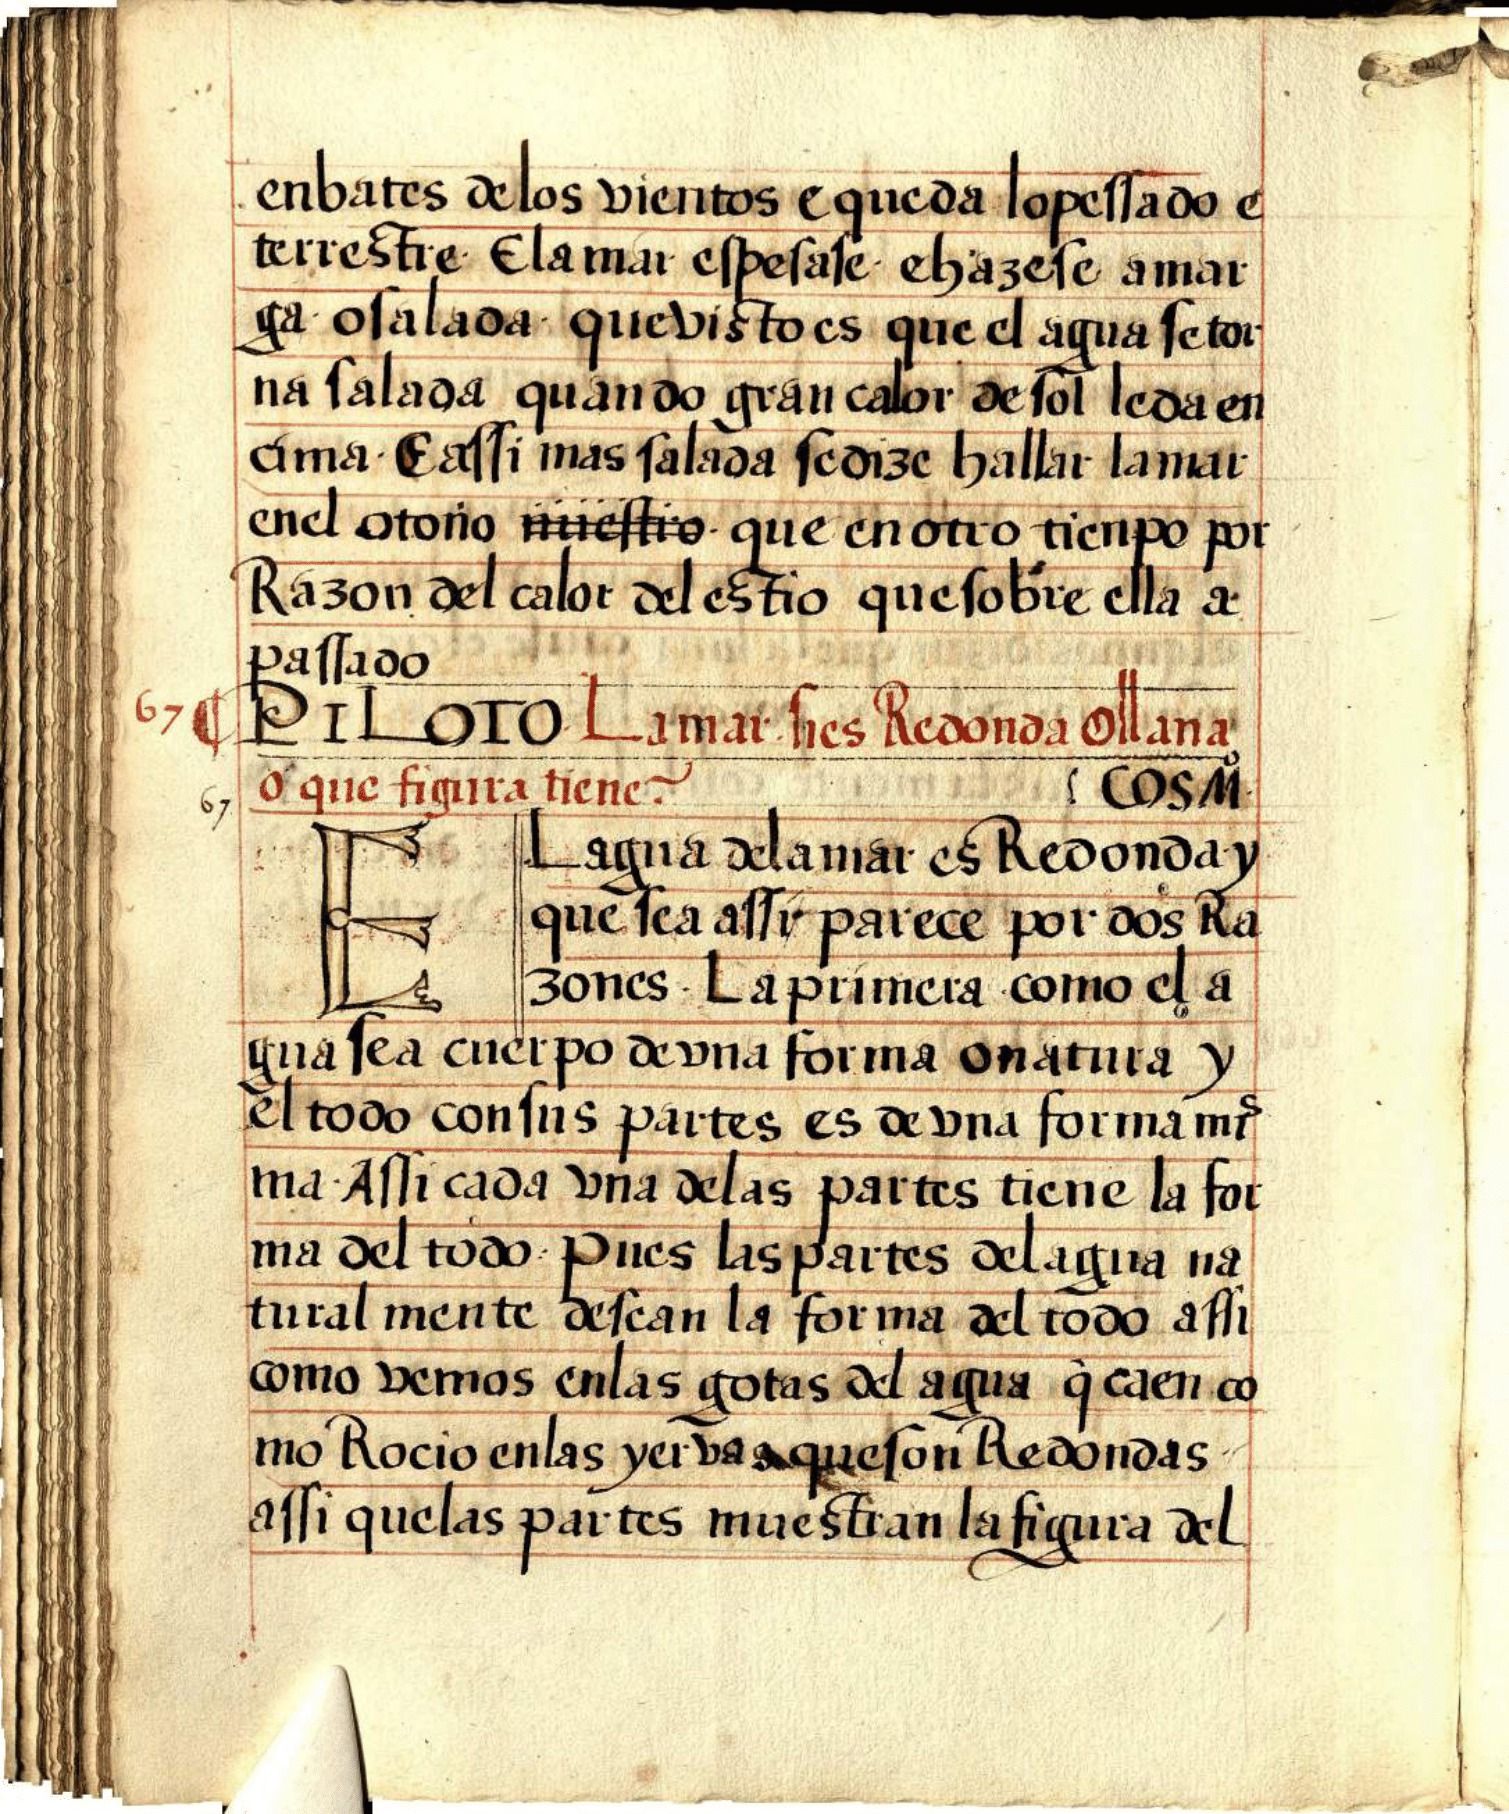 enbates delos vientos e queda lo pessado e
terrestre· E la mar espesase· e hazese amar
ga· o salada· que visto es que el agua se tor
na salada quando gran calor de sol le da en
cima· E assi mas salada se dize hallar la mar
enel otoño nuestro· que en otro tienpo por
Razon del calor del estio que sobre ella a
passado
67 ¶ PILOTO La mar si es Redonda o llana
67 o que figura tiene? COSMº
EL agua dela mar es Redonda y
que sea assi parece por dos Ra
zones· La primera como el a
gua sea cuerpo de vna forma o natura y
el todo con sus partes es de vna forma mis
ma· Assi cada vna delas partes tiene la for
ma del todo· Pues las partes del agua na
tural mente desean la forma del todo assi
como vemos enlas gotas del agua q̃ caen co
mo Rocio enlas yervas que son Redondas
assi quelas partes muestran la figura del